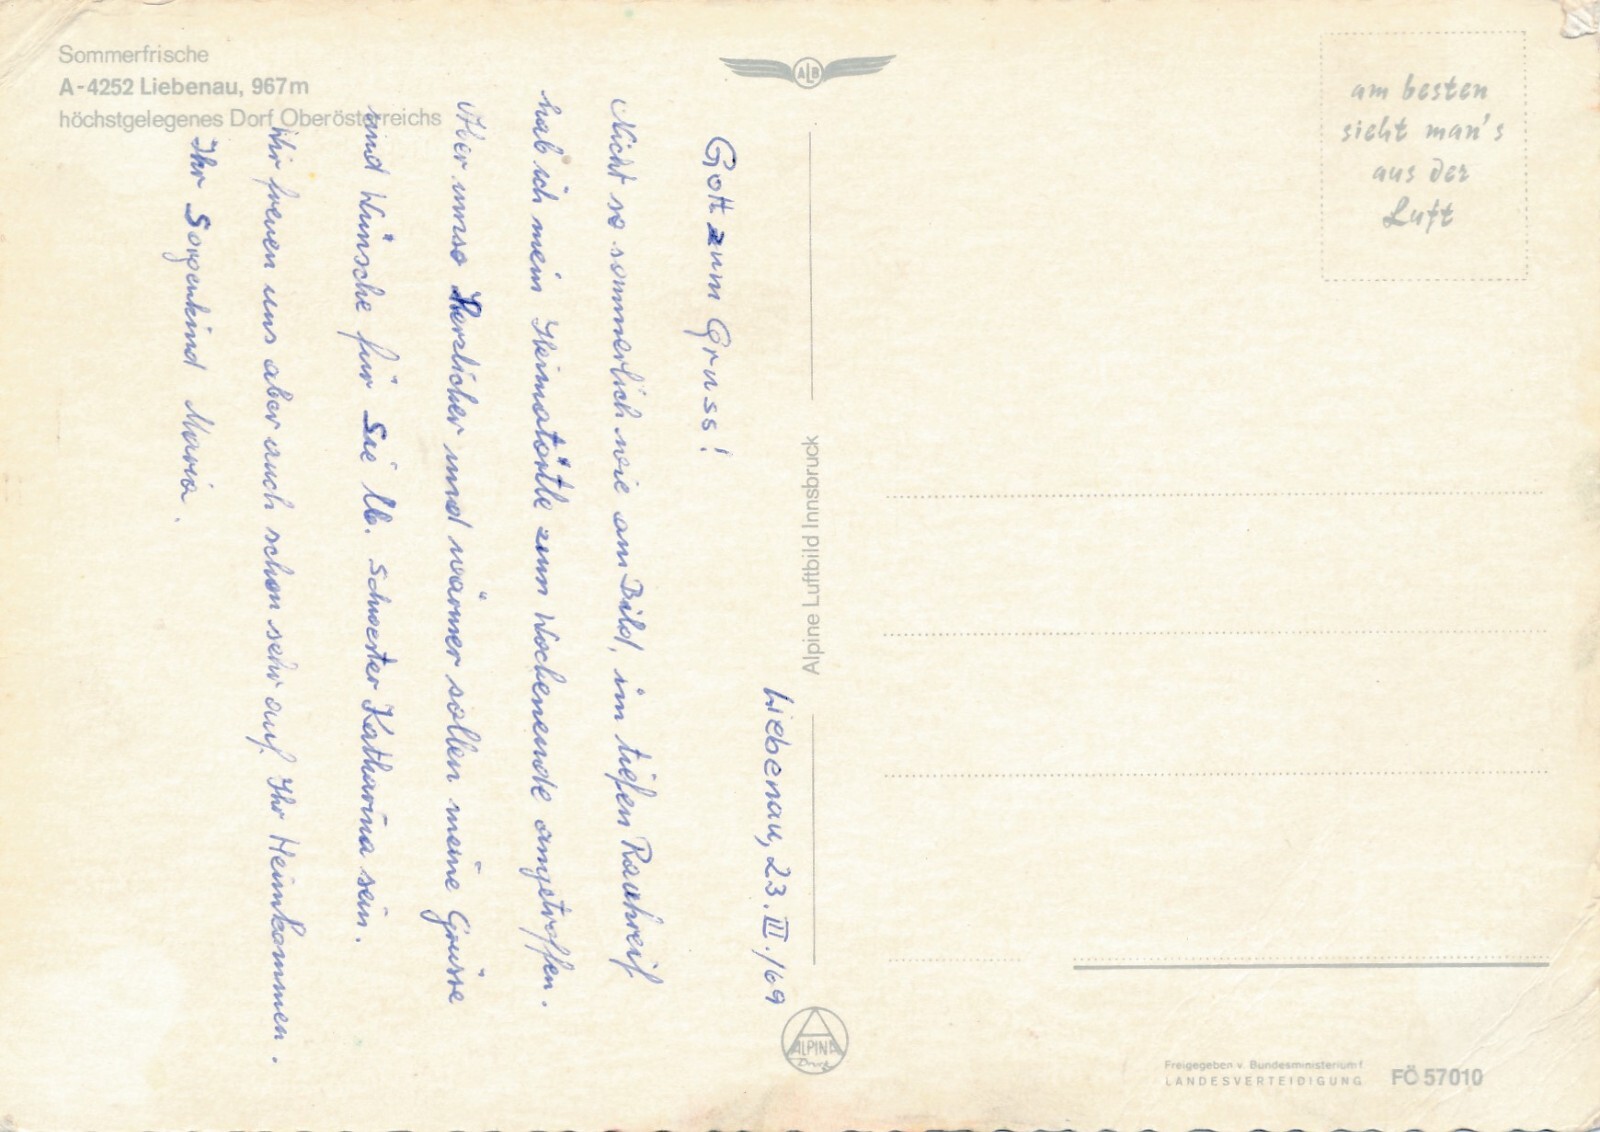 Sommerfrische
A-4252 Liebenau, 967m
höchstgelegenes Dorf Oberösterreichs
ALB
am besten
sieht man's
aus der
Luft
Liebenau, 23. III./69
Gott zum Gruss!
Nicht so sommerlich wie am Bild, im tiefen Rauhreif
hab ich mein Heimatörtle zum Wochenende angetroffen.
Aber umso Herzlicher und wärmer sollen meine Grüsse
und Wünsche für Sie lb. Schwester Katharina sein.
Wir freuen uns aber auch schon sehr auf Ihr Heimkommen.
Ihr Sorgenkind Maria.
Alpine Luftbild Innsbruck
ALPINA
Druck
Freigegeben v. Bundesministerium f
LANDESVERTEIDIGUNG
FÖ 57010